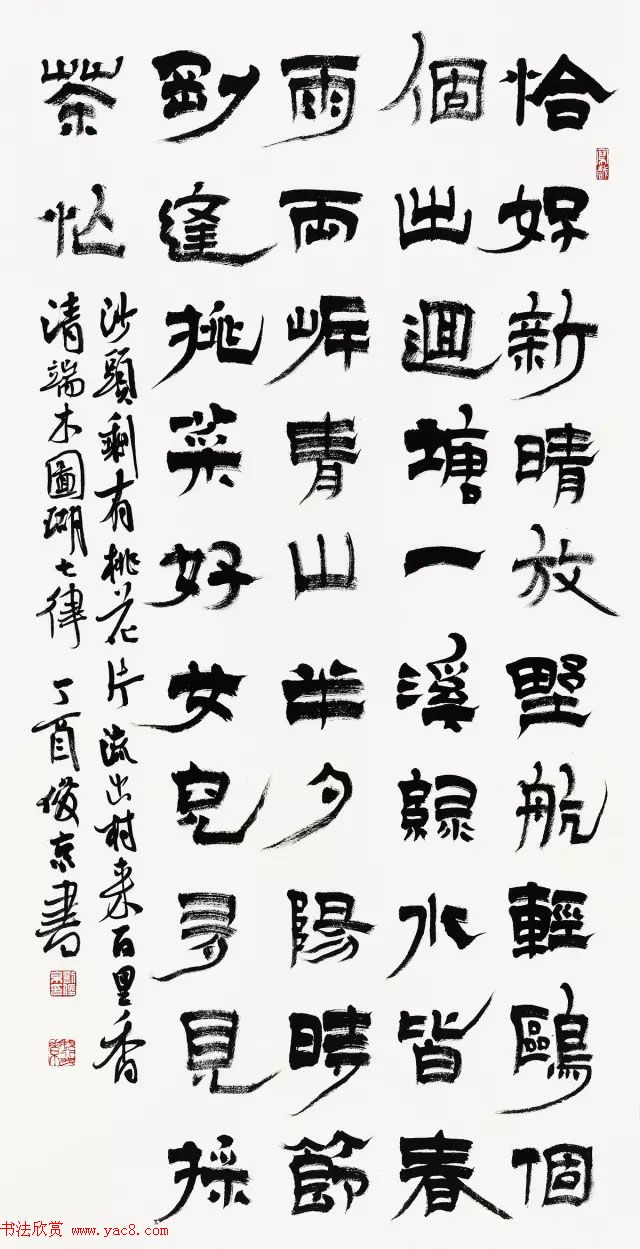 恰好新晴放野航輕鷗個
個出迴塘一溪綠水皆春
雨兩岸青山半夕陽時節
剛逢挑菜好女兒多見採
茶忙
沙頭剩有桃花片流出村來百里香
清端木國瑚七律 丁酉俊京書
书法欣赏 www.yac8.com